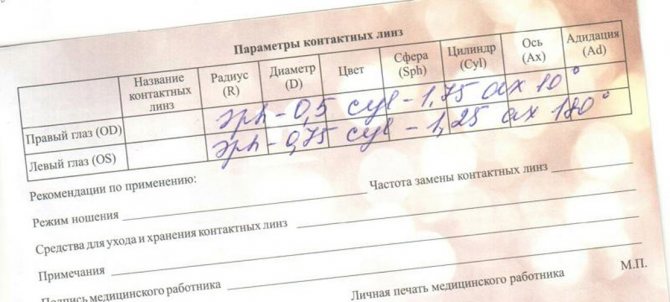 Параметры контактных линз
Название контактных линз Радиус (R) Диаметр (D) Цвет Сфера (Sph) Цилиндр (Cyl) Ось (Ax) Адидация (Ad)
Правый глаз (OD) sph - 0,5 cyl - 1,75 ax 10°
Левый глаз (OS) sph - 0,75 cyl - 1,25 ax 180°
Рекомендации по применению:
Режим ношения Частота замены контактных линз
Средства для ухода и хранения контактных линз
Примечания
Подпись медицинского работника Личная печать медицинского работника М.П.